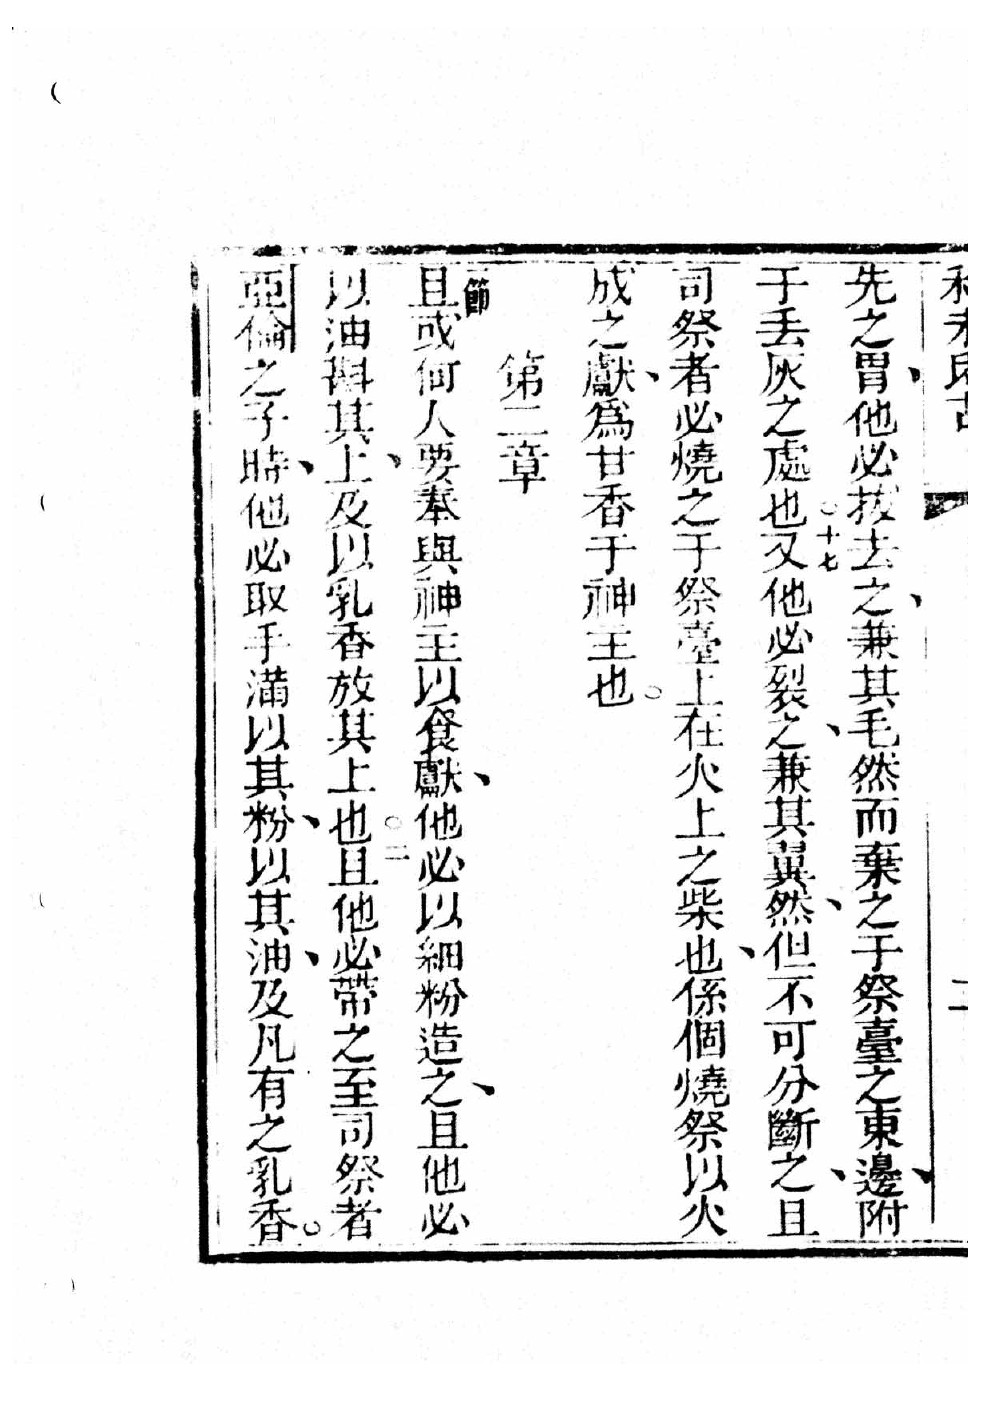 二
先之胃、他必拔去之、兼其毛然而棄之于祭臺之東邊、附
于丟灰之處也○十七又他必裂之、兼其翼然、但不可分斷之、且
司祭者必燒之于祭臺上在火上之柴也、係個燒祭以火
成之獻、為甘香于神主也○
第二章
節
且或何人要奉與神主以食獻、他必以細粉造之、且他必
以油斟其上、及以乳香放其上也○二且他必帶之至司祭者
亞倫之子時、他必取手滿以其粉、以其油、及凡有之乳香○